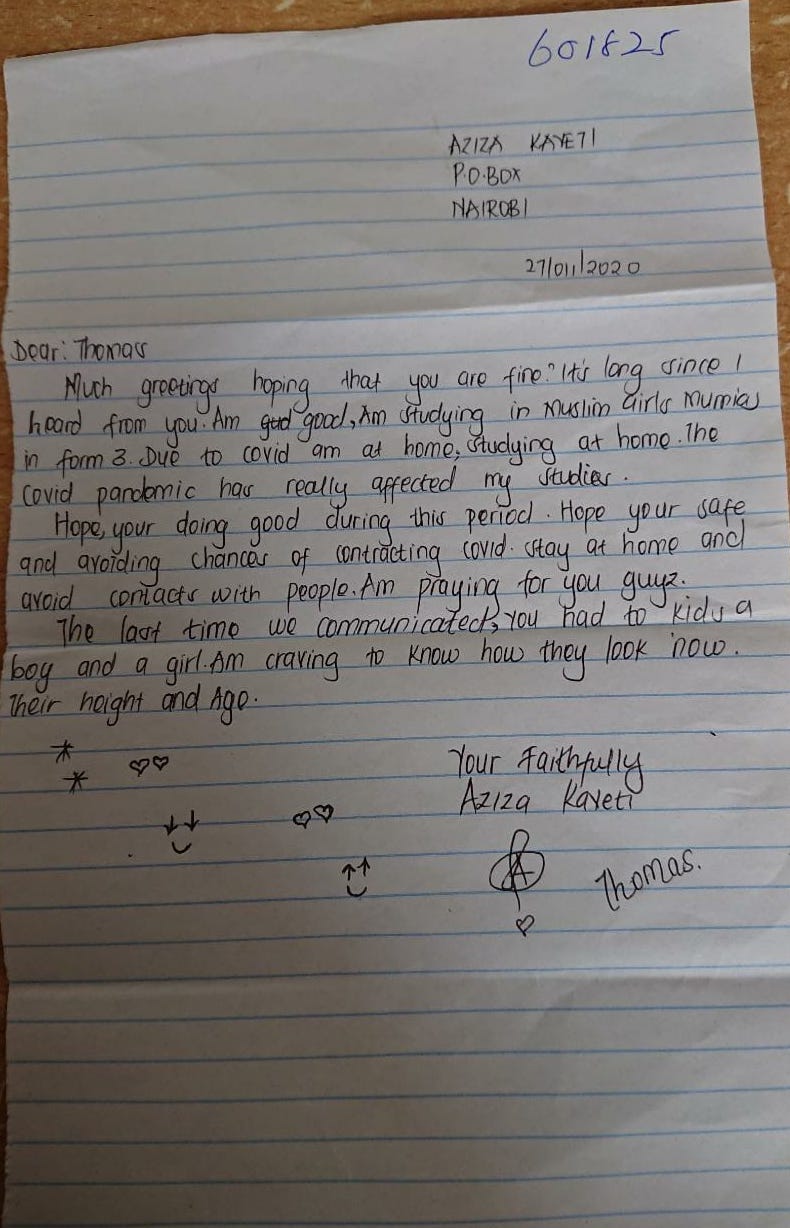 601825
AZIZA KAYETI
P.O.BOX
NAIROBI
27/011/2020
Dear: Thomas
Much greetings hoping that you are fine? It's long since I
heard from you. Am gud good, Am studying in Muslim Girls Mumias
in form 3. Due to covid am at home, studying at home. The
covid pandemic has really affected my studies.
Hope, your doing good during this period. Hope your safe
and avoiding chances of contracting covid. stay at home and
avoid contacts with people. Am praying for you guyz.
The last time we communicated, you had to kids a
boy and a girl. Am craving to know how they look now.
Their height and Age.
Your Faithfully
Aziza Kayeti
A
Thomas.